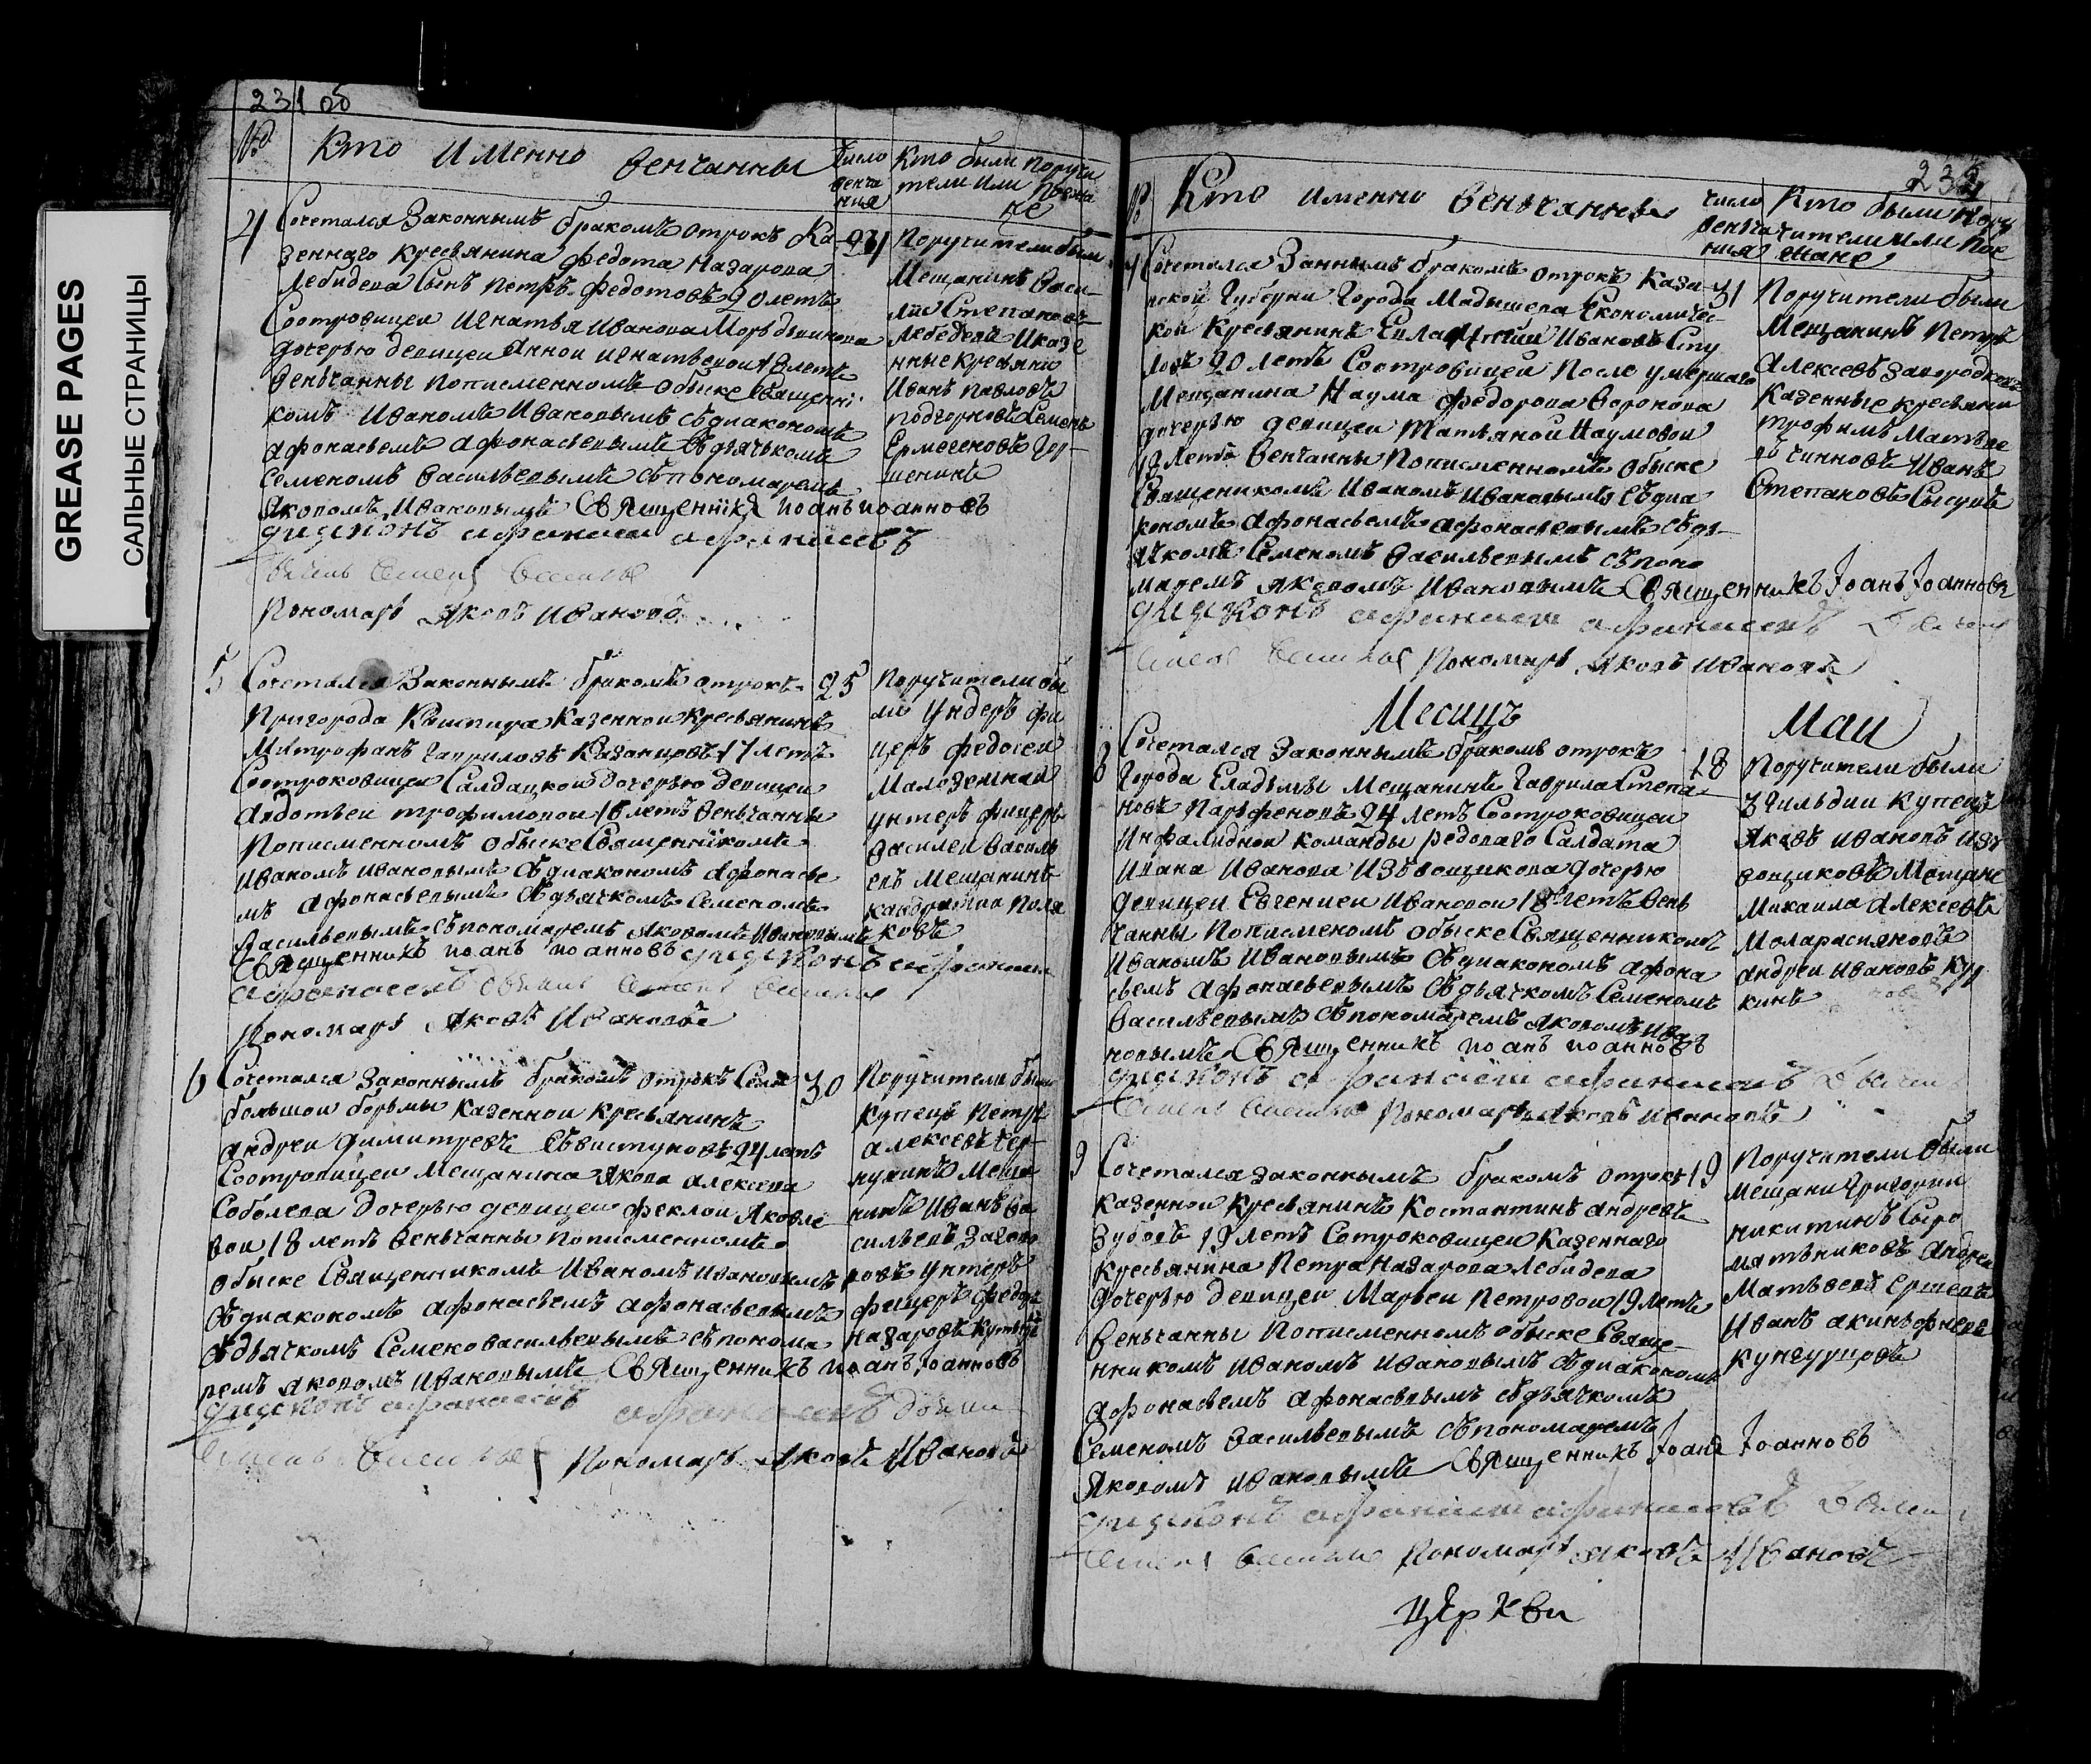 GREASE PAGES
САЛЬНЫЕ СТРАНИЦЫ
231 об
№
Кто именно венчанны
Число венчания
Кто были поручи
тели или поежа
не
4
Сочетался Законнымъ бракомъ отрокъ Ка-
зеннаго кресьянина Федота Назарова
Лебидева Сынъ Петръ Федотовъ 20 летъ
Соотроковицеи Игнатья Иванова Мордвинова
дочерью девицеи Анной Игнатьевои 18 летъ
веньчанны пописменномъ обыске Священни
комъ Иваномъ Ивановымъ Съдиакономъ
Афонасьемъ Афонасьевымъ Съдьячькомъ
Семеномъ Васильевымъ Съпономаремъ
Яковомъ Ивановымъ Священникъ Иоанъ Иоанновъ
диаконъ Афанасеи Афанасиевъ
Дьячекъ Семенъ Василье
Пономарь Яковъ Ивановъ
Поручители были
Мещанинъ Васи-
лии Степановъ
Лебедевъ Иказе
нные кресьяни
Иванъ Павловъ
Подгорновъ Семенъ
5
Сочетался Законнымъ бракомъ отрокъ
Пригорода Кашпира Казеннои кресьянинъ
Митрофанъ Гавриловъ Казанцовъ 17 летъ
Соотроковицеи Салдацкои дочерью девицеи
Авдотьеи Трофимовои 16 летъ веньчанны
Пописменномъ обыске Священникомъ
Иваномъ Ивановымъ Съдиакономъ Афонасье
мъ Афонасьевымъ Съдьячкомъ Семеномъ
Васильевымъ Съпономаремъ Яковомъ Ивановымъ
Священникъ Иоанъ Иоанновъ диаконъ Афанасеи
Афанасиевъ Дьячекъ Семенъ Василье
Пономарь Яковъ Ивановъ
25
Поручители бы
ли Ундеръ Фи
церъ Федосеи
Малоземнай
Унтеръ Фицеръ
Василеи Василь
евъ Мещанинъ
Поля
ковъ
6
Сочетался Законнымъ бракомъ отрокъ Села
большои борьмы казеннои кресьянинъ
Андреи Димитревъ Свистуновъ 24 летъ
Соотровицеи Мещанина Якова Алексеева
Соболева Дочерью девицеи Феклои Яковле
вои 18 летъ веньчанны пописменномъ
обыске Священникомъ Иваномъ Ивановымъ
Съдиакономъ Афонасьемъ Афонасьевымъ
Съдьячкомъ Семено Васильевымъ Съпонома
ремъ Яковомъ Ивановымъ Священникъ Иоанъ Иоанновъ
диаконъ Афанасеи Афанасиевъ Дьячекъ
Семенъ Василье Пономарь Яковъ Ивановъ
30
Поручители были
купецъ Петръ
Алексеевъ
Меща
нинъ Иванъ Ва
сильевъ
Унтеръ
фицеръ Федоръ
Назаровъ
№
Кто именно веньчанны
Число
веньча
ния
Кто были Пору
чители или Пое
жане
7
Сочетался Заннымъ бракомъ отрокъ Каза-
нской Губерни Города Мадышева Економичес-
кои Кресьянинъ Евлампии Ивановъ Сту
ловъ 20 летъ Соотровицеи После умершаго
Мещанина Наума Федорова Воронова
дочерью девицеи Татьяной Наумовои
19 летъ Венчанны Пописменномъ Обыске
Священикомъ Иваномъ Ивановымъ Съдиа
кономъ Афонасьемъ Афонасьевымъ Съдь-
ячкомъ Семеномъ Васильевымъ Съпоно
маремъ Яковомъ Ивановымъ Священникъ Iоанъ Iоанновъ
диаконъ Афанасеи Афанасиевъ Дьячекъ
Семенъ Василье Пономарь Яковъ Ивановъ
31
Поручители были
Мещанинъ Петръ
Алексеевъ Загородновъ
Казенные кресьяни
Трофимъ Матвее
въ Чинновъ Иванъ
Степановъ Сысуевъ
Месицъ
Маи
8
Сочетался Законнымъ бракомъ отрокъ
Города Еладьмы Мещанинъ Гаврила Степа
новъ Парьфеновъ 24 летъ Соотроковицеи
Инфалиднои команды редоваго Салдата
Ивана Иванова Извощикова дочерю
девицеи Евгениеи Ивановои 18 летъ вень
чанны Пописменомъ обыске Священникомъ
Иваномъ Ивановымъ Съдиакономъ Афона
сьемъ Афонасьевымъ Съдьячкомъ Семеномъ
Васильевымъ Съпономаремъ Яковомъ Ива
новымъ Священникъ Иоанъ Иоанновъ
диаконъ Афанасеи Афанасиевъ Дьячекъ
Семенъ Василье Пономарь Яковъ Ивановъ
18
Поручители были
3 Гильдии Купецъ
Яковъ Ивановъ Изъ
вощиковъ Мещане
Михаила Алексеевъ
Андреи Ивановъ Кур
кинъ
9
Сочетался законнымъ бракомъ отрокъ
казеннои кресьянинъ Костантинъ Андреевъ
Зубовъ 19 летъ Сотроковицеи Казеннаго
Кресьянина Петра Назарова Лебидева
дочерью девицеи Марьеи Петровои 19 летъ
Веньчанны Пописменномъ обыске Свяще-
нникомъ Иваномъ Ивановымъ Съдиакономъ
Афонасьемъ Афонасьвымъ Съдьячкомъ
Семеномъ Васильевымъ Съпономаремъ
Яковомъ Ивановымъ Священникъ Iоанъ Iоанновъ
диаконъ Афанасеи Афанасиевъ Дьячекъ
Семенъ Василье Пономарь Яковъ Ивановъ
19
Поручители были
Мещани Григореи
Никитинъ Сыро
мятьниковъ Андреи
Матьвеевъ Ершевъ
Иванъ Акиньфиевъ
Кунгурцовъ
церкви